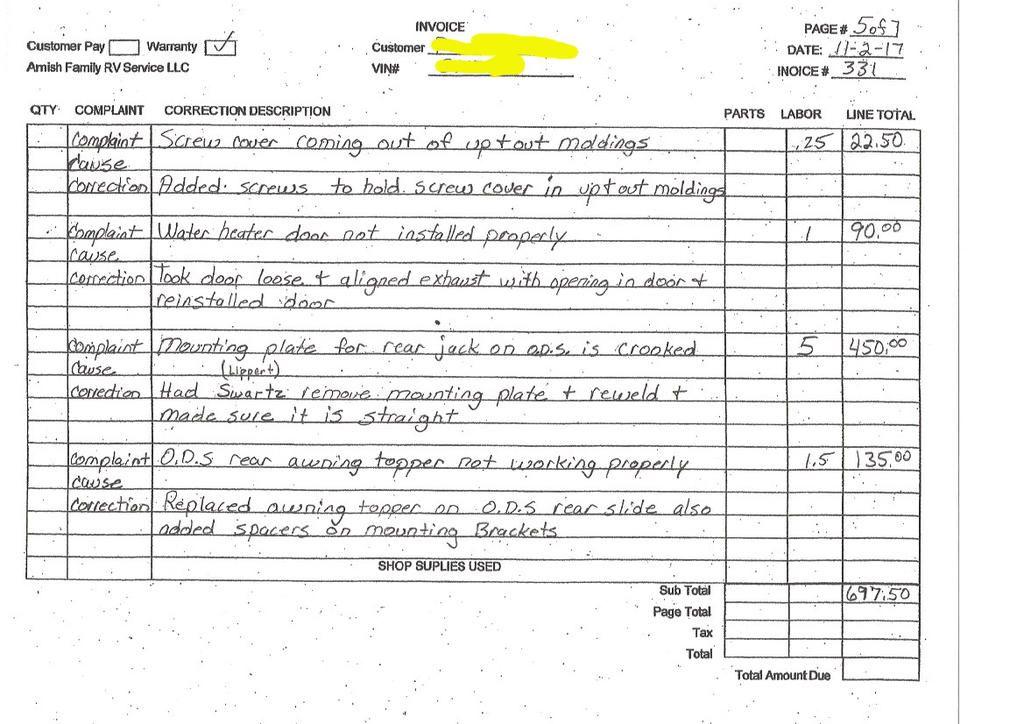 INVOICE
PAGE# 5of7
Customer Pay Warranty ✓ Customer
DATE: 11-2-17
Amish Family RV Service LLC VIN#
INOICE# 331
QTY COMPLAINT CORRECTION DESCRIPTION PARTS LABOR LINE TOTAL
Complaint Screw cover coming out of up+out moldings .25 22.50
Cause
Correction Added screws to hold screw cover in up+out moldings
Complaint Water heater door not installed properly 1 90.00
Cause
Correction Took door loose + aligned exhaust with opening in door +
reinstalled door
Complaint Mounting plate for rear jack on O.D.S. is crooked 5 450.00
Cause (Lippert)
Correction Had Swartz remove mounting plate + reweld +
made sure it is straight
Complaint O.D.S rear awning topper not working properly 1.5 135.00
Cause
Correction Replaced awning topper on O.D.S rear slide also
added spacers on mounting Brackets
SHOP SUPLIES USED
Sub Total 697.50
Page Total
Tax
Total
Total Amount Due